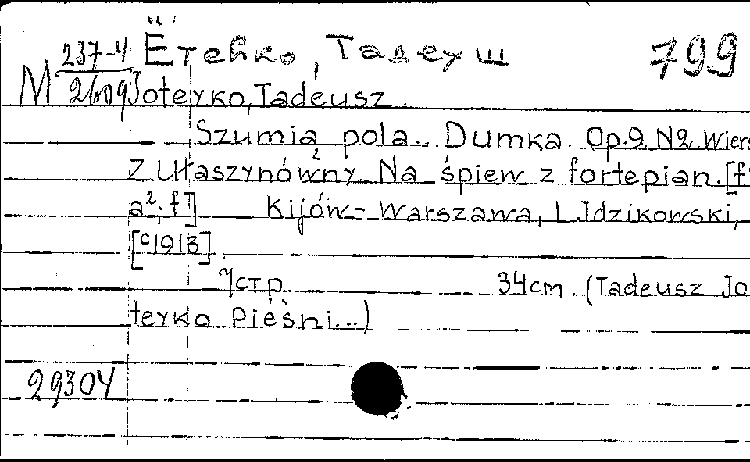 Ётейко, Тадеуш
799
M 237-4/2609
Joteyko, Tadeusz
Szumia̧ pola.. Dumka. Op.9 N2. Wiers
Z Ułaszynówny. Na śpiew z fortepian. [f¹
a²; f¹] Kijów-Warszawa, L. Idzikowski,
[c1913]
7стр. 34cm. (Tadeusz Jo-
teyko Pieśni...)
29304